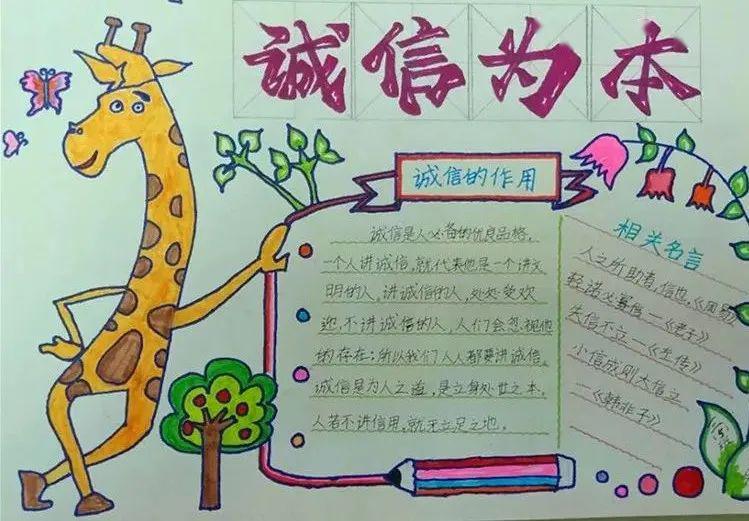 诚信为本
诚信的作用
诚信是人必备的优良品格,
一个人讲诚信,就代表他是一个讲文
明的人,讲诚信的人,处处受欢
迎,不讲诚信的人,人们会忽视他
的存在;所以我们人人都要讲诚信,
诚信是为人之道,是立身处世之本,
人若不讲信用,就无立足之地。
相关名言
人之所助者,信也,《周易》
轻诺必寡信—《老子》
失信不立—《左传》
小信成则大信立
—《韩非子》